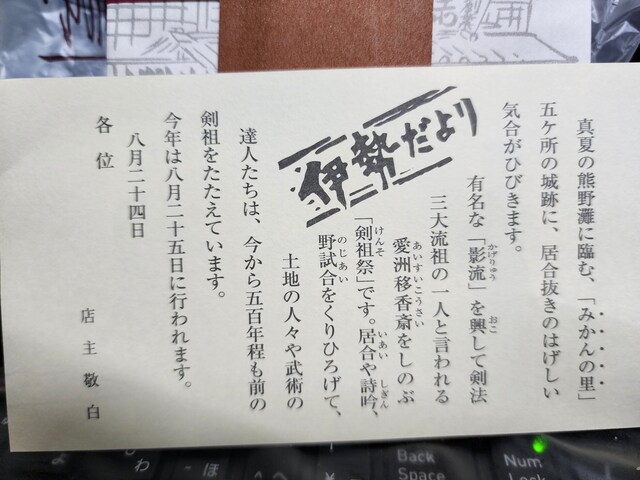 真夏の熊野灘に臨む、「みかんの里」
五ケ所の城跡に、居合抜きのはげしい
気合がひびきます。
伊勢だより
有名な「影流」を興して剣法
かげりゅう
おこ
三大流祖の一人と言われる
愛洲移香斎をしのぶ
あいすいこうさい
「剣祖祭」です。居合や詩吟、
けんそ
いあい
しぎん
野試合をくりひろげて、
のじあい
土地の人々や武術の
達人たちは、今から五百年程も前の
剣祖をたたえています。
今年は八月二十五日に行われます。
八月二十四日
店主敬白
各位
Back
Space
Num
Lock
よ
わ
ほ
へ
¥